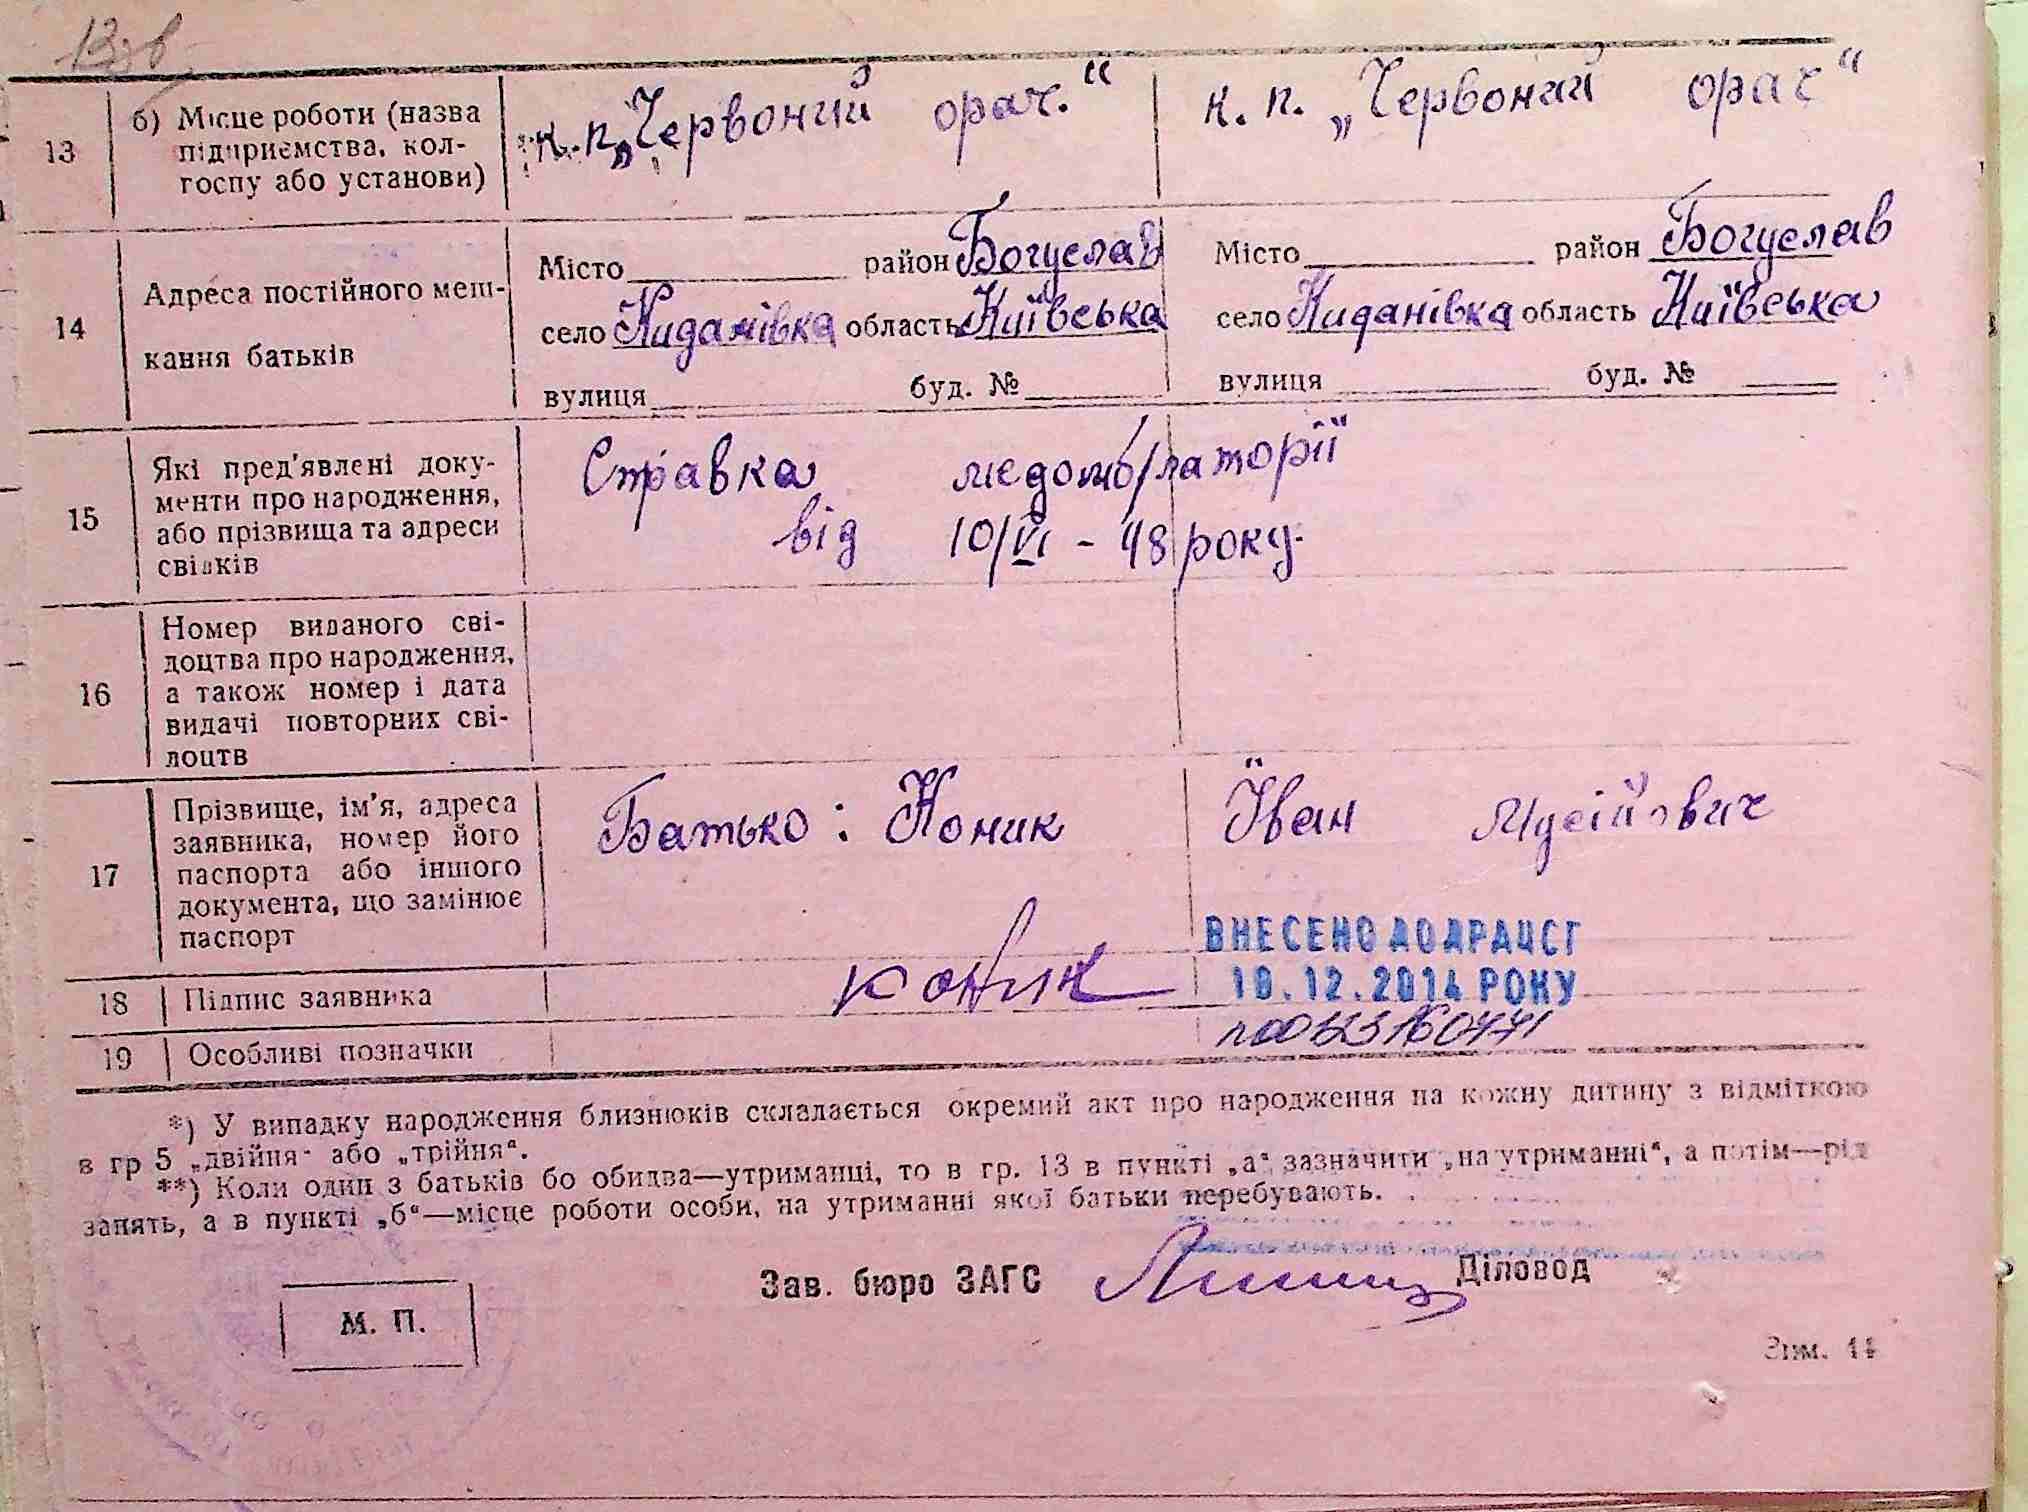 13зв
13
б) Місце роботи (назва
підприємства, кол-
госпу або установи)
к.п. „Червоний орач."
к. п. „Червоний орач"
14
Адреса постійного меш-
кання батьків
Місто район Богуслав
село Киданівка область Київська
вулиця буд. №
Місто район Богуслав
село Киданівка область Київська
вулиця буд. №
15
Які пред'явлені доку-
менти про народження,
або прізвища та адреси
свідків
Справка
від 10/VI - 48 року.
16
Номер виданого сві-
доцтва про народження,
а також номер і дата
видачі повторних сві-
доцтв
17
Прізвище, ім'я, адреса
заявника, номер його
паспорта або іншого
документа, що замінює
паспорт
Батько: Коник Їван Мусійович
18
Підпис заявника
Коник
ВНЕСЕНО ДО ДРАЦСГ
10.12.2014 РОКУ
19
Особливі позначки
*) У випадку народження близнюків складається окремий акт про народження на кожну дитину з відміткою
в гр 5 „двійня" або „трійня".
**) Коли один з батьків бо обидва—утриманці, то в гр. 13 в пункті „а" зазначити „на утриманні", а потім—рід
занять, а в пункті „б"—місце роботи особи, на утриманні якої батьки перебувають.
Зав. бюро ЗАГС
Діловод
М. П.